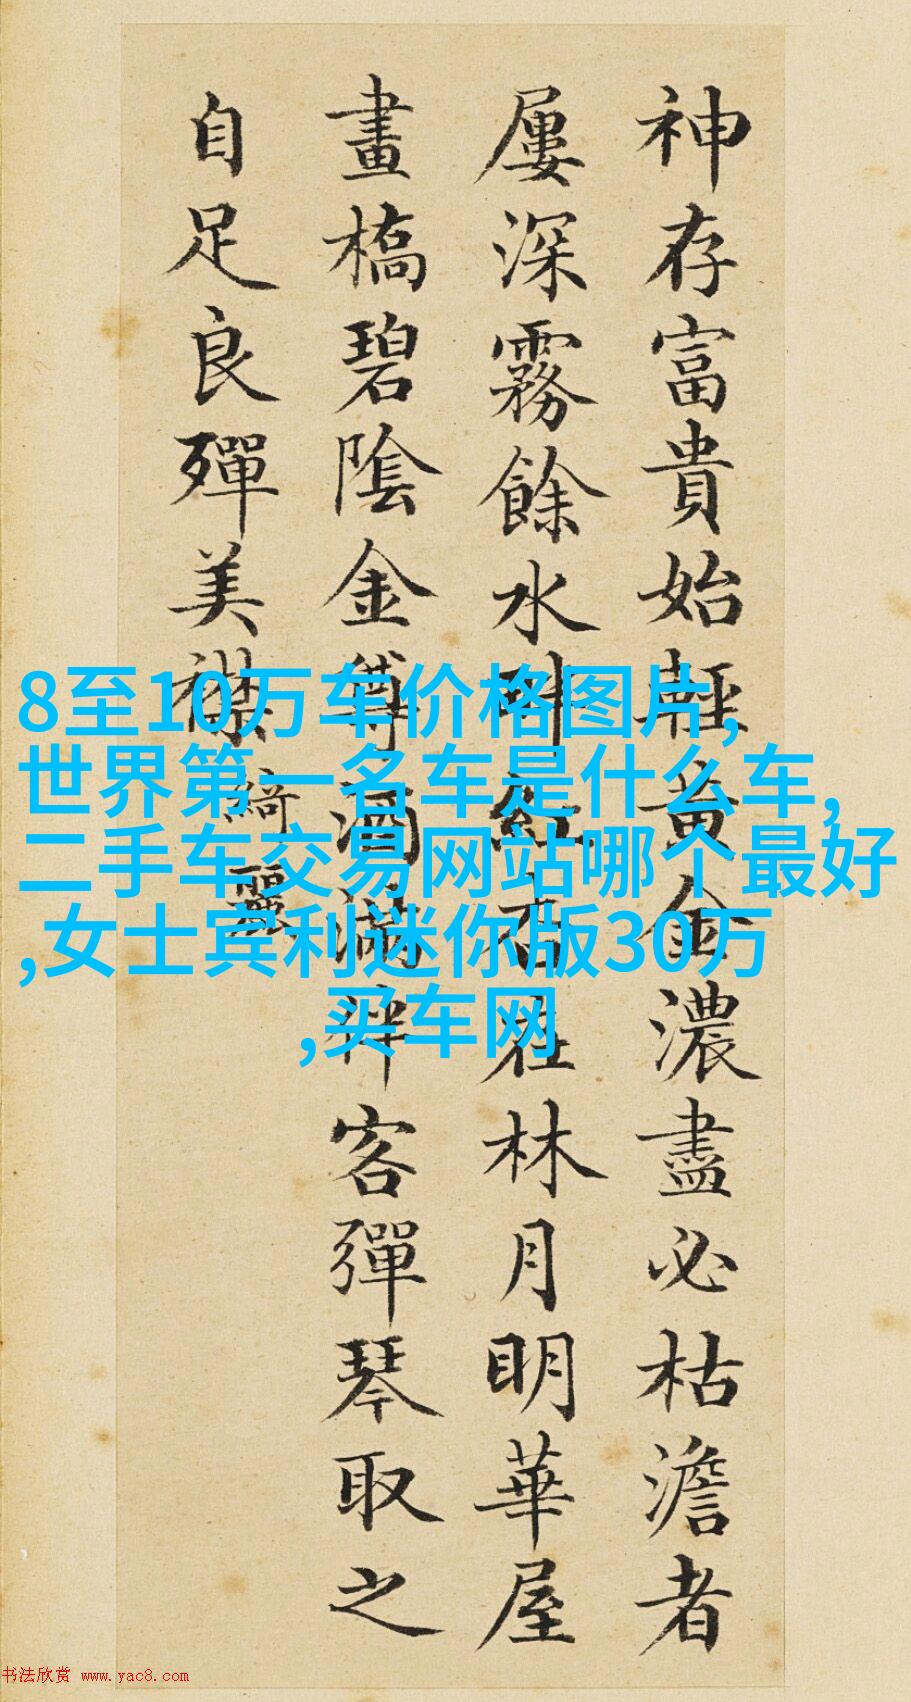 神存富貴始輕黃金濃盡必枯澹者
屢深霧餘水畔紅杏在林月明華屋
畫橋碧陰金樽酒滿客彈琴取之
自足良殫美襟
綺麗
8至10万车价格图片,
世界第一名车是什么车,
二手车交易网站哪个最好
,女士宾利迷你版30万
,买车网
书法欣赏 www.yac8.com